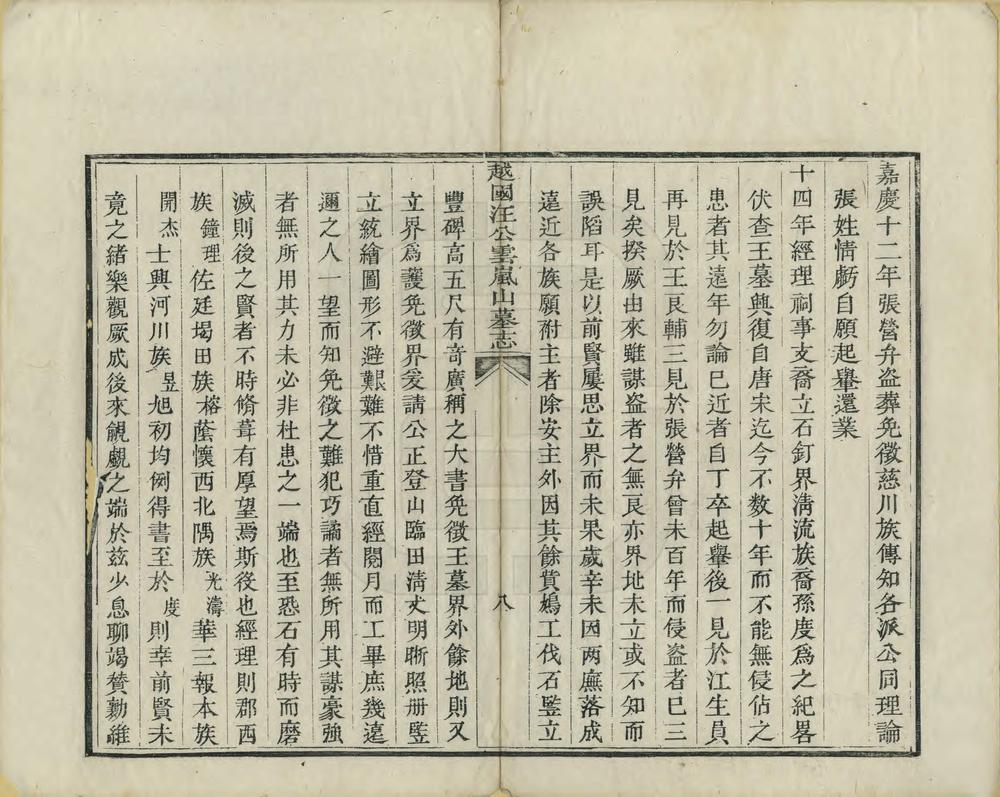 嘉慶十二年張營弁盜葬免徵慈川族傳知各派公同理論
張姓情虧自願起舉還業
十四年經理祠事支裔立石釘界清流族裔孫度爲之紀畧
伏查王墓興復自唐宋迄今不数十年而不能無侵佔之
患者其遠年勿論巳近者自丁卒起舉後一見於江生員
再見於王良輔三見於張營弁曾未百年而侵盜者巳三
見矣揆厥由來雖謀盜者之無良亦界址未立或不知而
誤蹈耳是以前賢屢思立界而未果歲辛未因两廡落成
遠近各族願祔主者除安主外因其餘貲鳩工伐石豎立
越國汪公雲嵐山墓志 八
豐碑高五尺有竒廣稱之大書免徵王墓界外餘地則又
立界爲護免徵界爰請公正登山臨田清丈明晰照册豎
立統繪圖形不避艱難不惜重直經閱月而工畢庶幾遠
邇之人一望而知免徵之難犯巧譎者無所用其謀豪強
者無所用其力未必非杜患之一端也至恐石有時而磨
滅則後之賢者不時脩葺有厚望焉斯役也經理則郡西
族鐘理佐廷堨田族榕蔭懷西北隅族光濤華三報本族
開杰士興河川族昱旭初均例得書至於度則幸前賢未
竟之緒樂觀厥成後來覬覦之端於兹少息聊竭贊勷雖